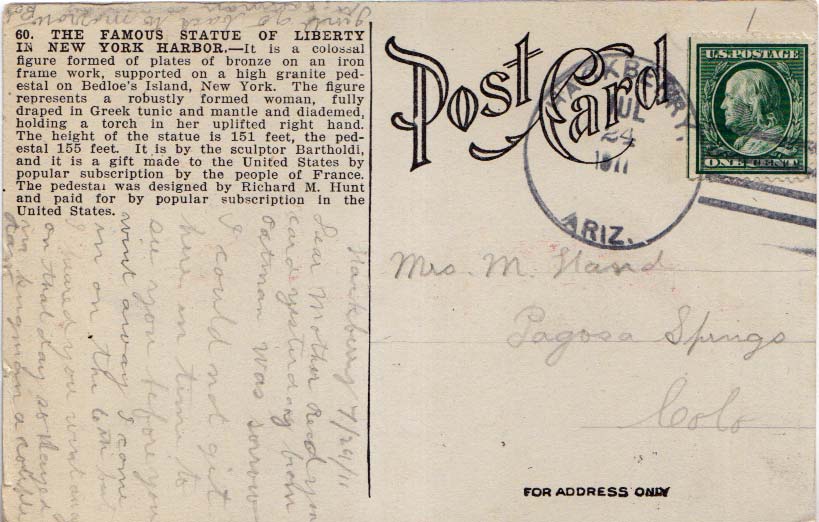 60. THE FAMOUS STATUE OF LIBERTY
IN NEW YORK HARBOR.—It is a colossal
figure formed of plates of bronze on an iron
frame work, supported on a high granite ped-
estal on Bedloe's Island, New York. The figure
represents a robustly formed woman, fully
draped in Greek tunic and mantle and diademed,
holding a torch in her uplifted right hand.
The height of the statue is 151 feet, the ped-
estal 155 feet. It is by the sculptor Bartholdi,
and it is a gift made to the United States by
popular subscription by the people of France.
The pedestal was designed by Richard M. Hunt
and paid for by popular subscription in the
United States.
Post Card
HACKBERRY,
JUL
24
1911
ARIZ.
U.S. POSTAGE
ONE CENT
Mrs. M. Hand
Pagosa Springs
Colo
FOR ADDRESS ONLY
Hackberry 7/24/11
Dear Mother Recd your
card yesterday from
Oatman was sorrow
I could not git
here in time to
see you before you
went away I come
in on the 6th but
I heard you went
on that day so stayed
in Kingman a couple
days